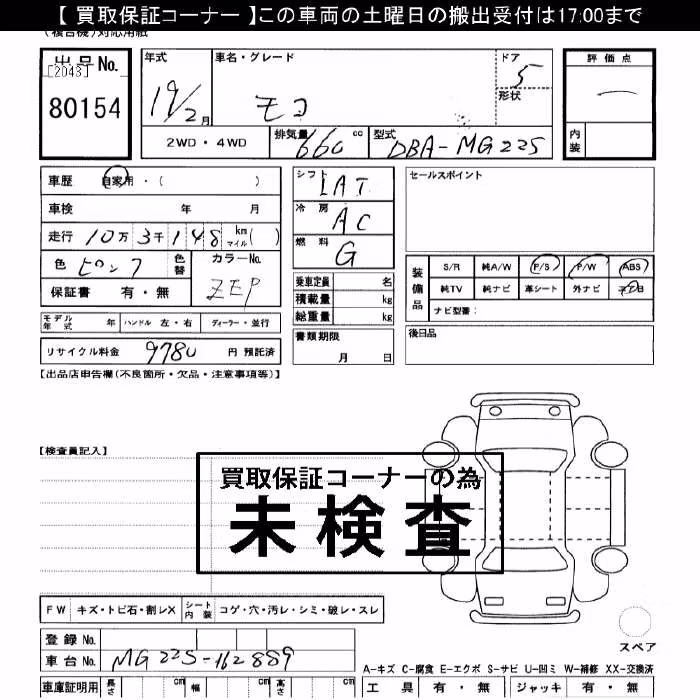 【 買取保証コーナー 】この車両の土曜日の搬出受付は17:00まで
(複合機)対応用紙
出品No. [2043] 80154
年式 19/2月
車名・グレード モコ
ドア 5
形状
評価点 ―
内装
2WD・4WD
排気量 660 cc
型式 DBA-MG22S
車歴 自家用・( )
車検 年 月
走行 10万3千148 km マイル( )
色 ピンク 色替
カラーNo. ZEP
保証書 有・無
シフト IAT
冷房 AC
燃料 G
乗車定員 名
積載量 kg
総重量 kg
セールスポイント
装備品 S/R 純A/W P/S P/W ABS
純TV 純ナビ 革シート 外ナビ
ナビ型番:
モデル年式 年 ハンドル 左・右 ディーラー・並行
書類期限 月 日
後日品
リサイクル料金 9780 円 預託済
【出品店申告欄(不良箇所・欠品・注意事項等)】
【検査員記入】
買取保証コーナーの為
未検査
FW キズ・トビ石・割レX シート内装 コゲ・穴・汚レ・シミ・破レ・スレ
登録No.
車台No. MG22S-162889
スペア
A-キズ C-腐食 E-エクボ S-サビ U-凹ミ W-補修 XX-交換済
車庫証明用 長さ cm 幅 cm 高さ cm
工具 有・無 ジャッキ 有・無